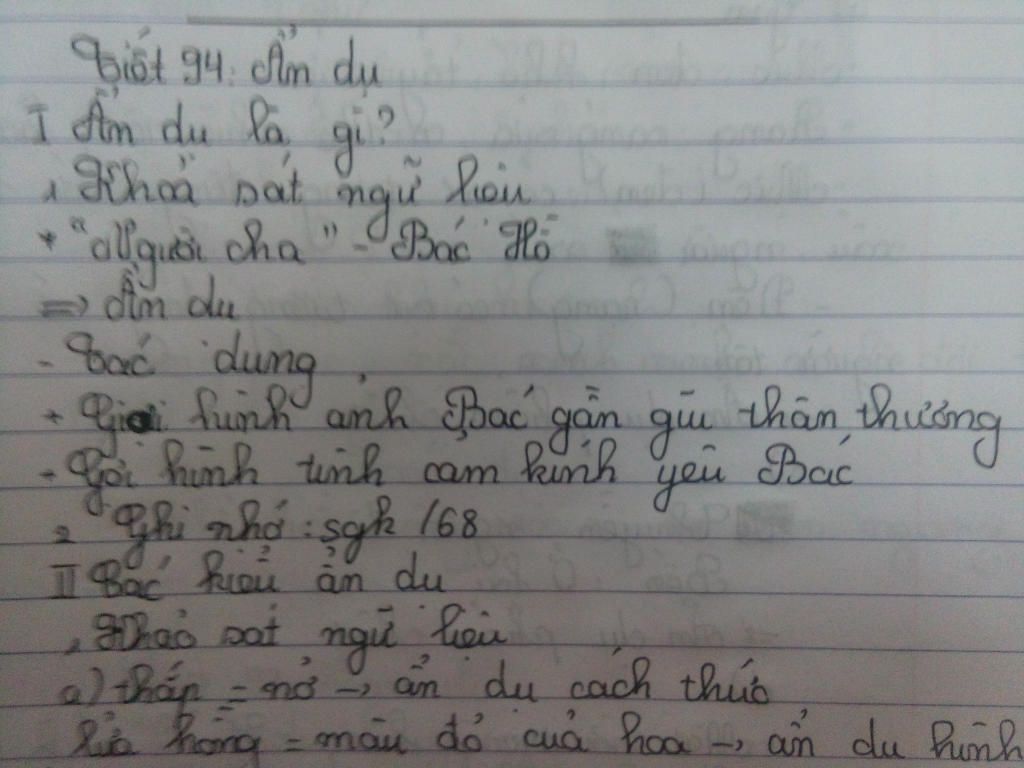 Tiết 94: Ẩn dụ
I Ẩn du là gì?
1 Khoả sát ngữ liệu
* "Người cha" - Bác Hồ
=> Ẩn du
- Tác dung
+ Gợi hình anh Bác gần gũi thân thương
- Gợi hình tình cam kính yêu Bác
2 Ghi nhớ: sgk 168
II Bác kiểu ẩn du
1 Khảo sát ngữ liệu
a) thắp = nở -> ẩn du cách thức
lửa hồng = màu đỏ của hoa -> ẩn du hình